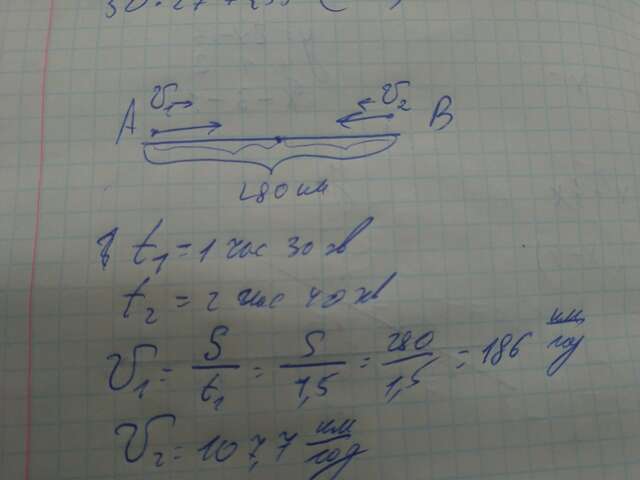 A V₁ → ← V₂ B
280 км
t₁ = 1 час 30 хв
t₂ = 2 час 40 хв
V₁ = S/t₁ = S/1,5 = 280/1,5 = 186 км/год
V₂ = 107,7 км/год